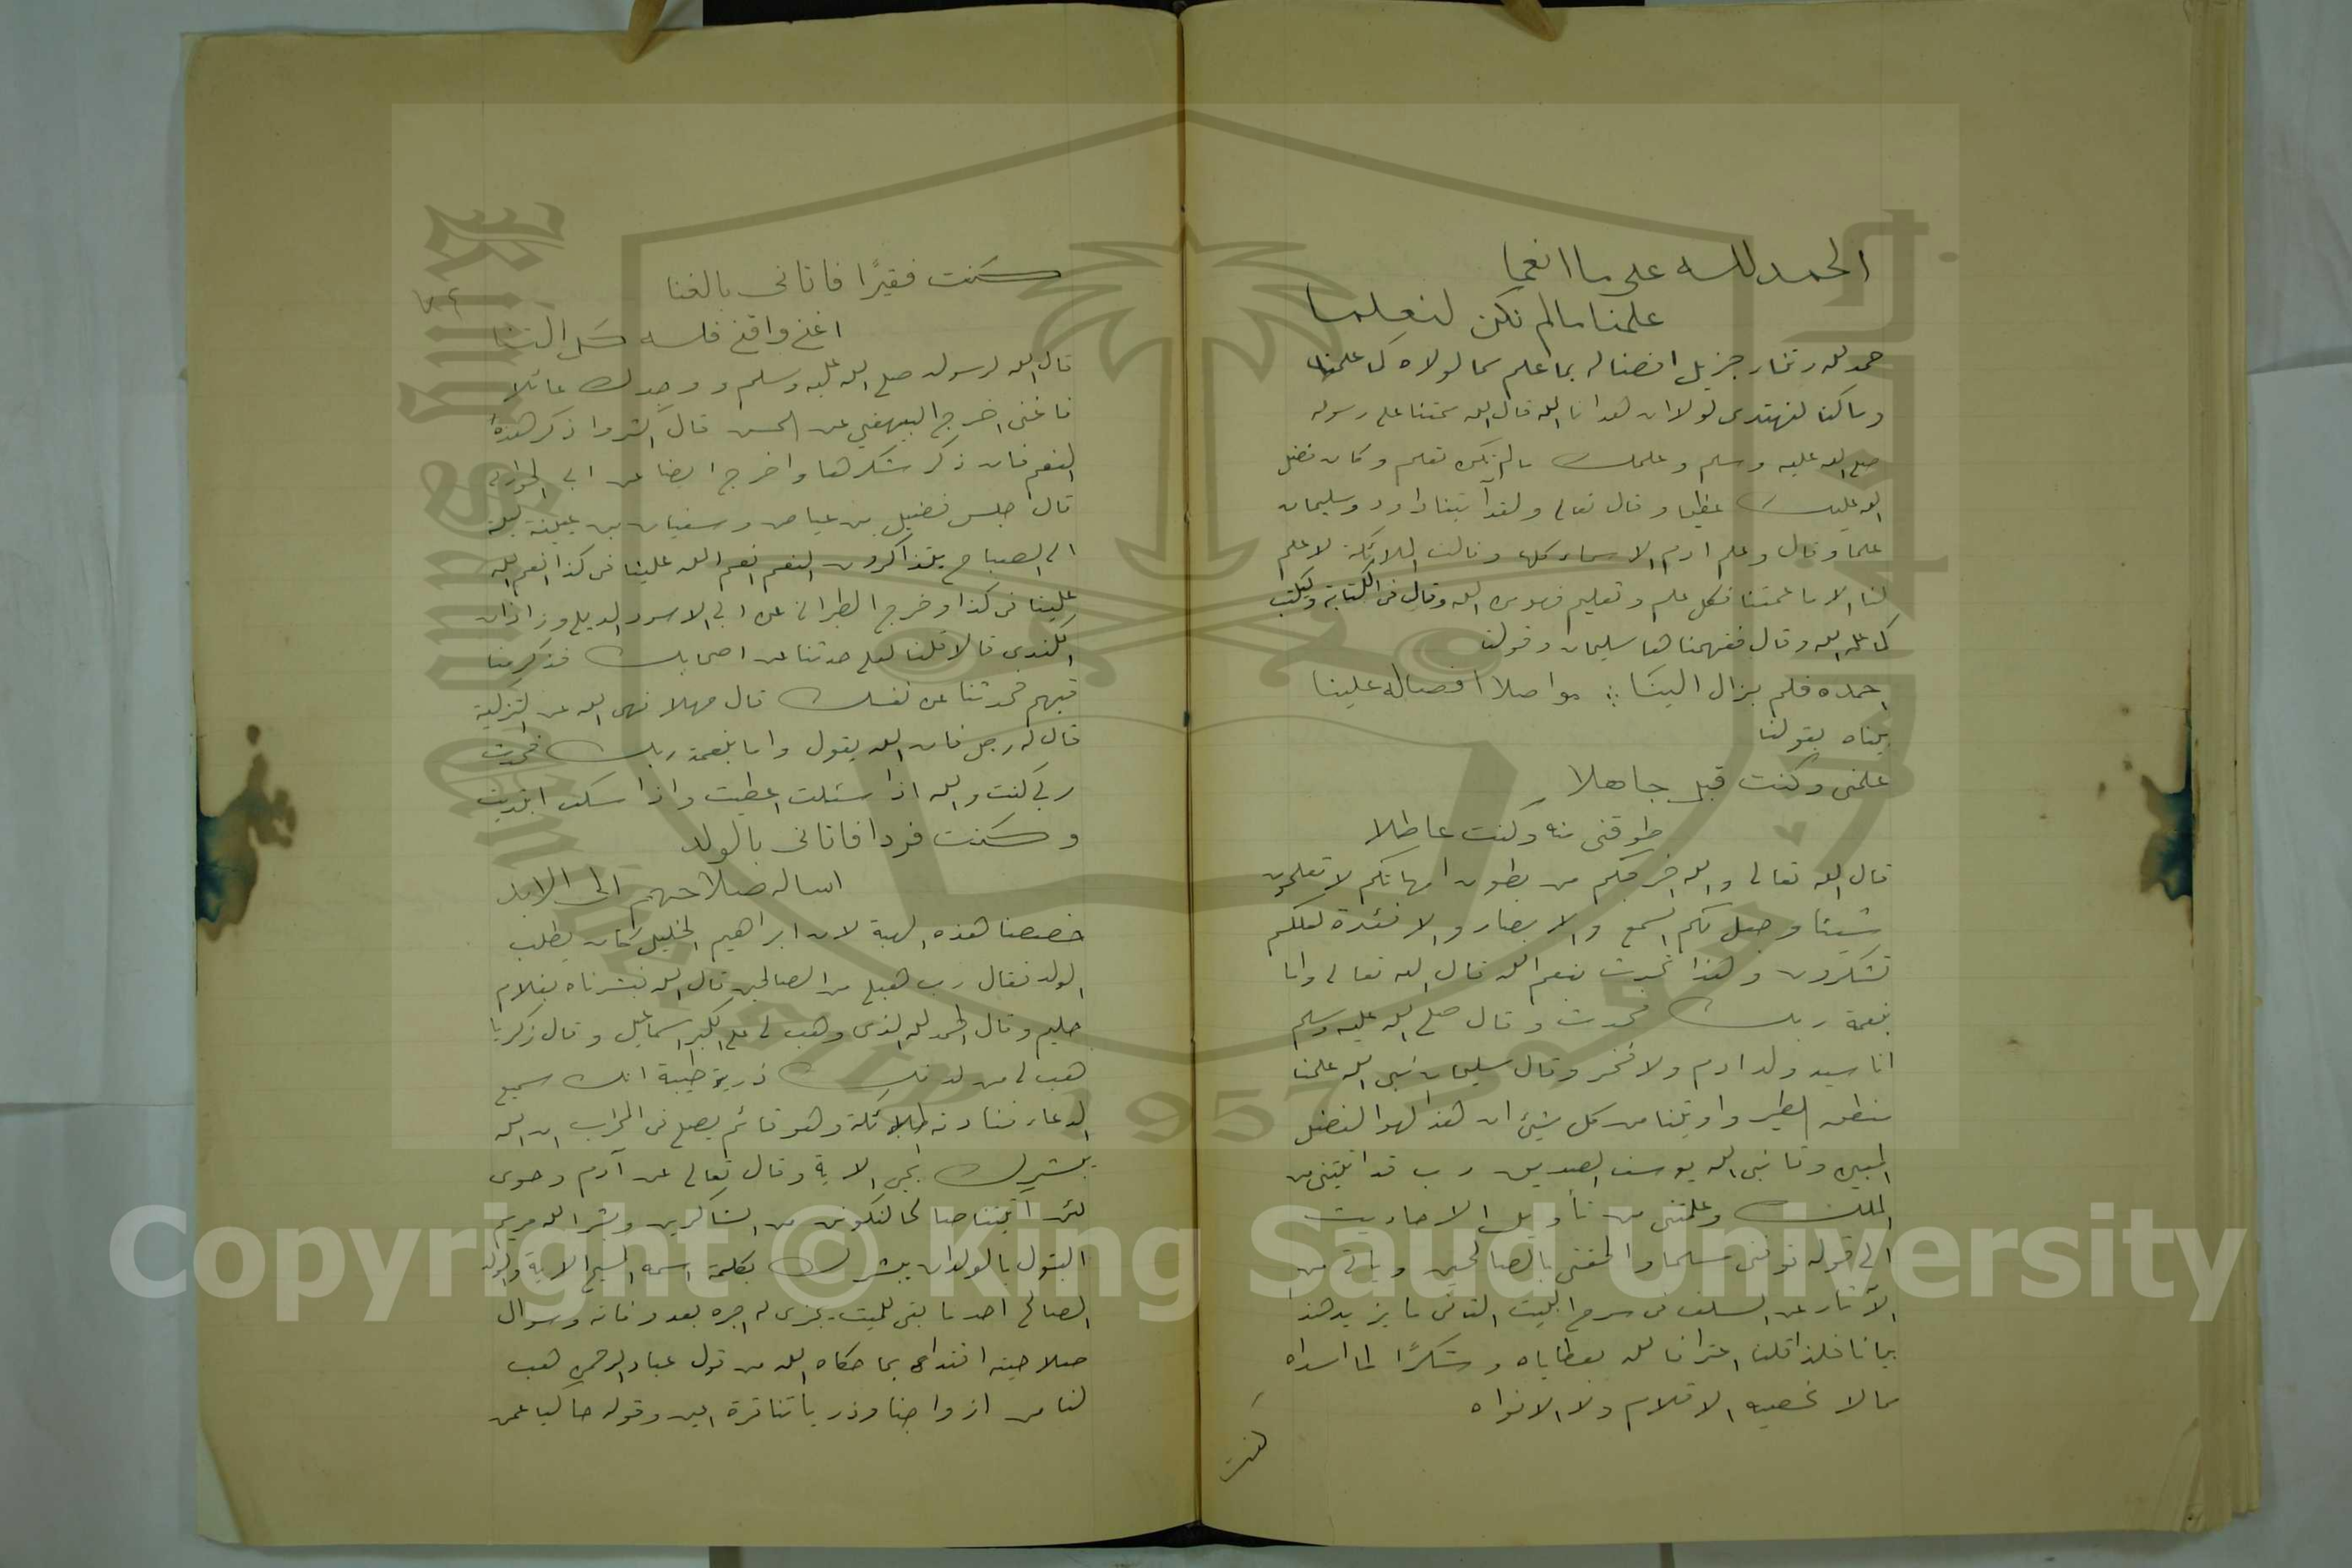 الحمد لله على ما انعما
علمنا ما لم نكن لنعلما
حمد لله رتخار جزيل افضاله بما علم مما لولاه لما علمنا
وما كنا لنهتدى لولا ان هدانا الله قال الله ممتنا على رسوله
صلى الله عليه وسلم وعلمك ما لم تكن تعلم وكان فضل
الله عليك عظيما وقال تعالى ولقد آتينا داود وسليمان
علما وقال وعلم ادم الاسماء كلها وقالت الملائكة لا علم
لنا الا ما علمتنا فكل علم وتعليم فهو من الله وقال فى الكتابة وليكتب
كما علمه الله وقال ففهمناها سليمان وقولنا
احمده فلم يزال الينا ∴ مواصلا افضاله علينا
بيناه بقولنا
علمنى وكنت قبل جاهلا
طوقنى منه وكنت عاطلا
قال الله تعالى والله اخرجكم من بطون امهاتكم لا تعلمون
شيئا وجعل لكم السمع والابصار والافئدة لعلكم
تشكرون وهذا تحدث بنعم الله قال الله تعالى واما
بنعمة ربك فحدث وقال صلى الله عليه وسلم
انا سيد ولد ادم ولا فخر وقال سليمان نبى الله علمنا
منطق الطير واوتينا من كل شيئ ان هذا لهو الفضل
المبين وقا نبى الله يوسف الصديق رب قد اتيتنى من
الملك وعلمتنى من تأويل الاحاديث
الى قوله توفنى مسلما والحقنى بالصالحين وياتى من
الآثار عن السلف فى شرح البيت الثانى ما يزيد هذا
بيانا فلذا قلنا اعترافا لله بعطاياه وشكرًا لما اسداه
مما لا تحصيه الاقلام ولا الافواه
كنت
كنت فقيرًا فاتانى بالغنا
اغنى واقنى فلله كل الثنا
قال الله لرسوله صلى الله عليه وسلم ووجدك عائلا
فاغنى اخرج البيهقي عن الحسن قال اكثروا ذكر هذه
النعم فان ذكر شكرها واخرج ايضا عن ابى الحوارى
قال جلس فضيل بن عياض وسفيان بن عيينة ليلة
الى الصباح يتذاكرون النعم انعم الله علينا فى كذا انعم الله
علينا فى كذا وخرج الطبرانى عن ابى الاسود الديلى وزاذان
الكندى قالا قلنا لعلى حدثنا عن اصحابك فذكر منا
قبهم فحدثنا عن نفسك قال مهلا نهى الله عن التزكية
قال له رجل فان الله يقول واما بنعمة ربك فحدث
ربى كنت والله اذا سئلت اعطيت واذا سكت ابتديت
وكنت فردا فاتانى بالولد
اساله صلاحهم الى الابد
خصصنا هذه الهبة لان ابراهيم الخليل كان يطلب
الولد فقال رب هبلى من الصالحين قال الله فبشرناه بغلام
حليم وقال الحمد لله الذى وهب لى على الكبر اسماعيل وقال زكريا
هب لى من لدنك ذرية طيبة انك سميع
الدعاء فنادته الملائكة وهو قائم يصلى فى المحراب ان الله
يبشرك بيحيى الاية وقال تعالى عن آدم وحوى
لئن آتيتنا صالحا لنكونن من الشاكرين وبشر الله مريم
البتول بالولدان يبشرك بكلمة اسمه المسيح الاية والولد
الصالح احد ما بقى للميت يجزى له اجره بعد وفاته وسوال
صلاحيته اقتداء بما حكاه الله من قول عباد الرحمن هب
لنا من ازواجنا وذرياتنا قرة اعين وقوله حاكيا عمن
Copyright © King Saud University
1957